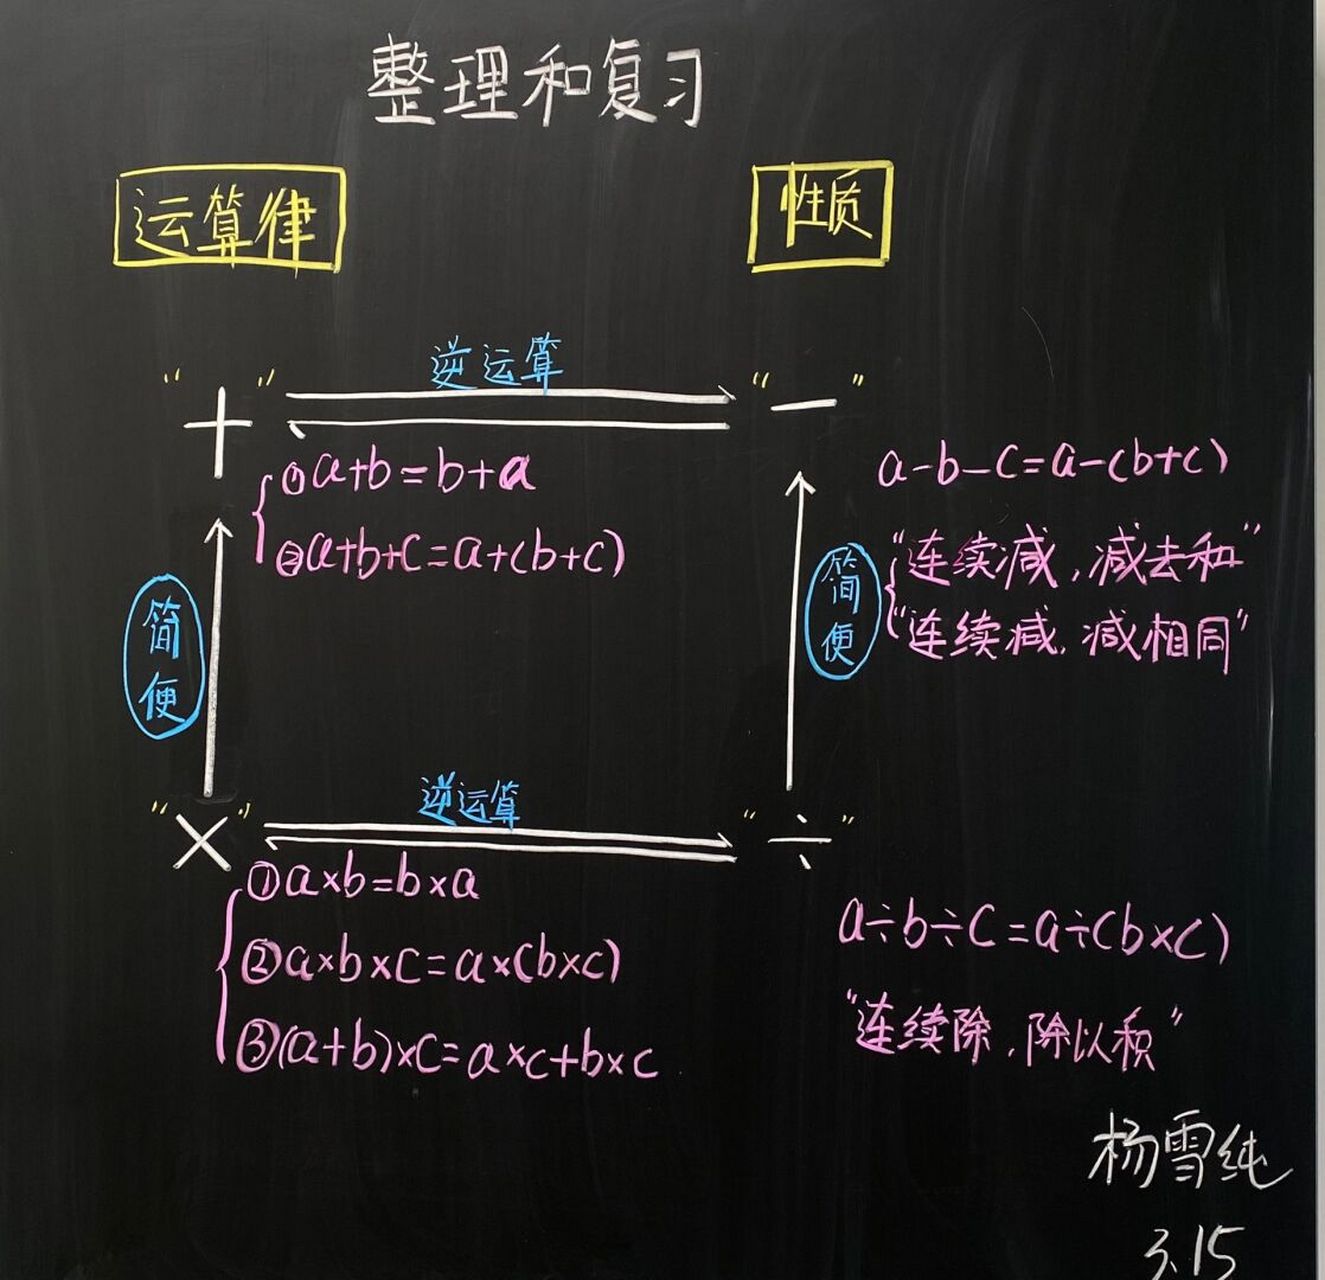 整理和复习
运算律
性质
逆运算
“+”
“−”
①a+b=b+a
②a+b+c=a+(b+c)
简便
a-b-c=a-(b+c)
“连续减,减去和”
“连续减,减相同”
简便
逆运算
“×”
“÷”
①a×b=b×a
②a×b×c=a×(b×c)
③(a+b)×c=a×c+b×c
a÷b÷c=a÷(b×c)
“连续除,除以积”
杨雪纯
3.15